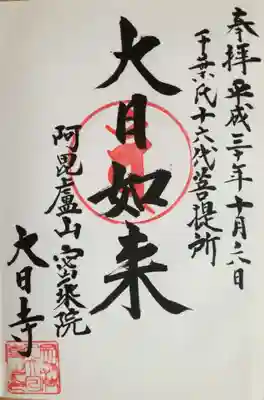 奉拝 平成三十年十月六日
千葉氏十六代菩提所
大日如来
阿毘廬山 密乗院
大日寺